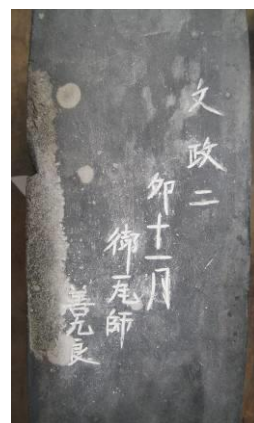 文政二
卯十一月
御瓦師
善九良